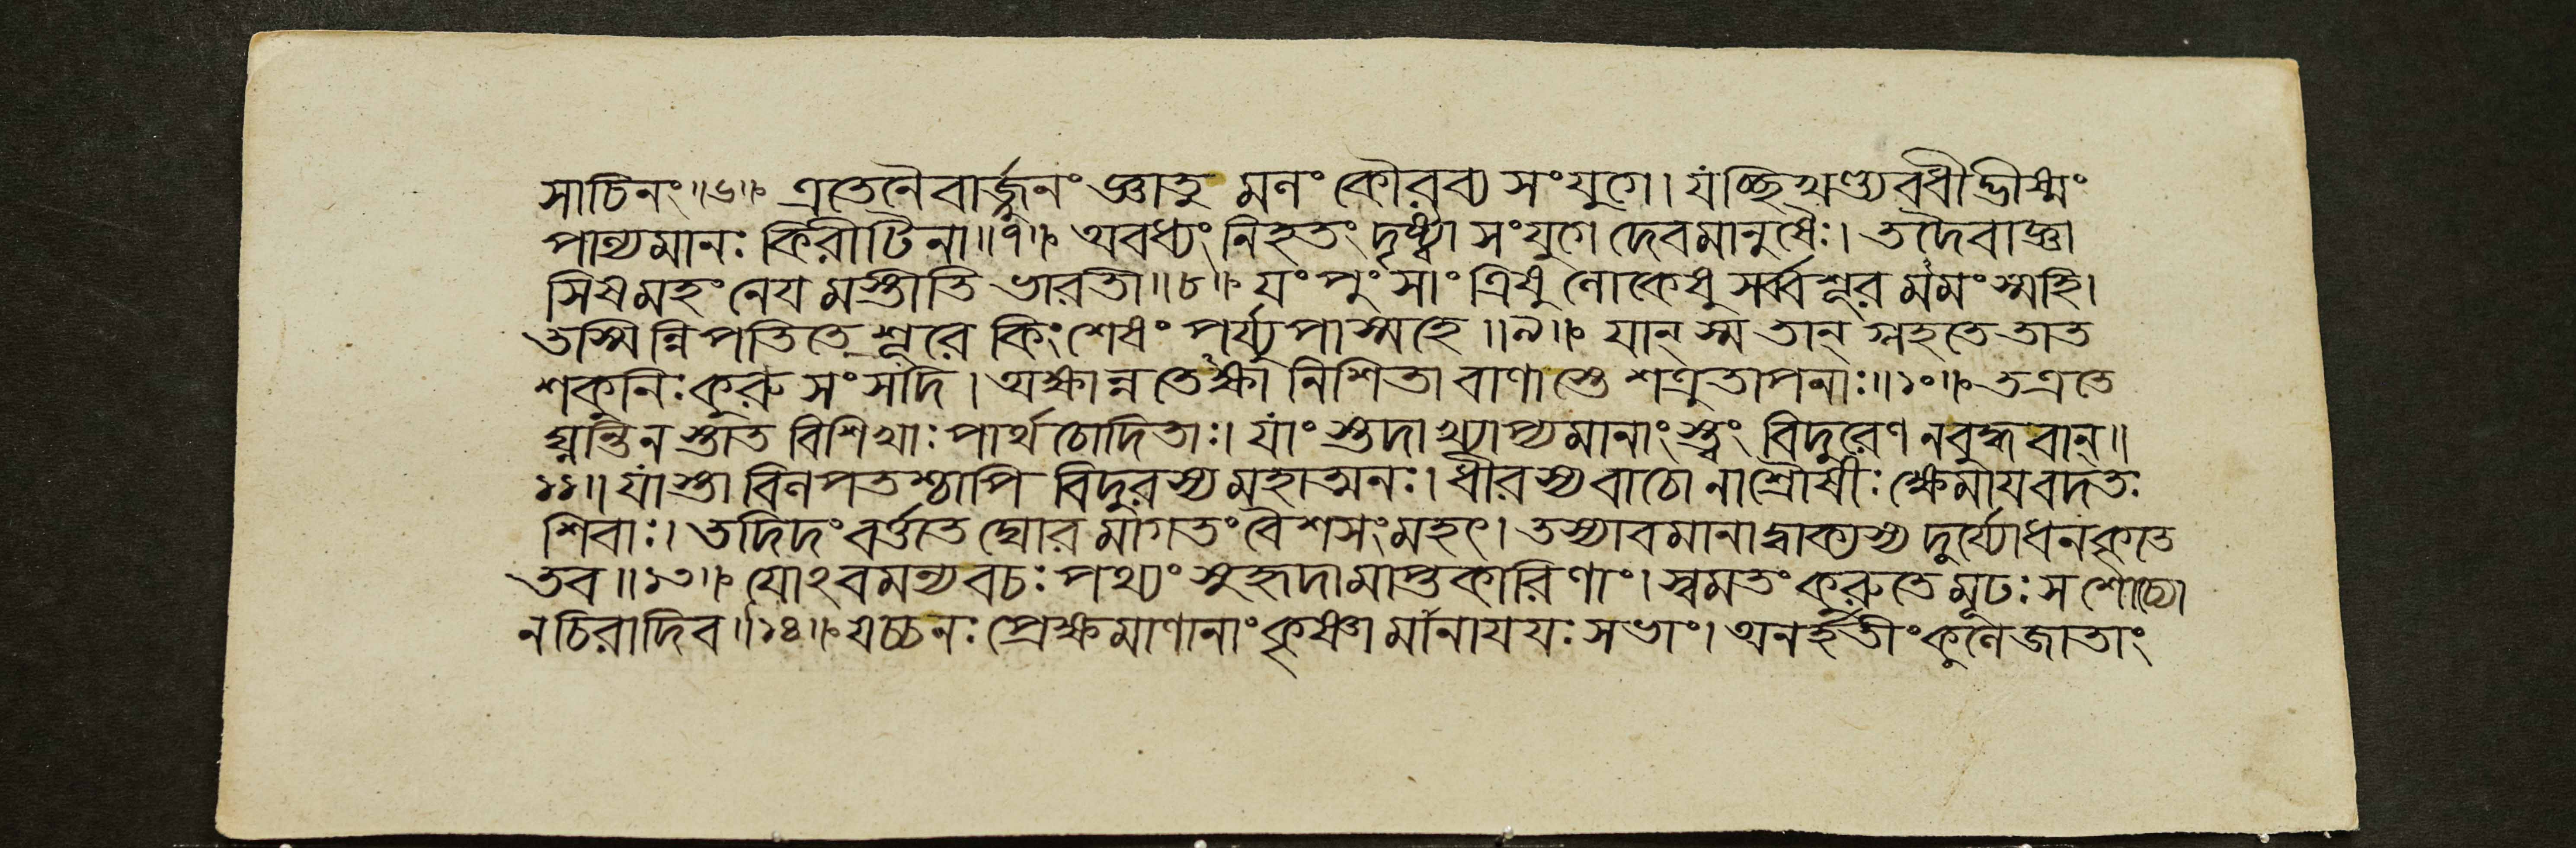 সাচিনং॥৬॥ এতেনৈবার্জ্জুনং জ্ঞাতু মলং কৌরব্য সংযুগে। যচ্ছিখণ্ড্যবধীদ্ভীষ্মং
পাল্যমানঃ কিরীটিনা॥৭॥ অবধ্যং নিহতং দৃষ্ট্বা সংযুগে দেবমানুষৈঃ। তদৈবাজ্ঞা
সিষমহং নেয়মস্তীতি ভারতী॥৮॥ যং পুংসাং ত্রিষু লোকেষু সর্ব্বশূরমমংস্মহি।
তস্মিন্নিপতিতে শূরে কিং শেষং পর্য্যুপাস্মহে॥৯॥ যান্ স্ম তান্ গ্লহতে তাত
শকুনিঃ কুরুসংসদি। অক্ষান্নতেক্ষা নিশিতা বাণাস্তে শত্রুতাপনাঃ॥১০॥ ত এতে
ঘ্নন্তি নস্তাত বিশিখাঃ পার্থচোদিতাঃ। যাংস্তদাখ্যাপ্যমানাংস্ত্বং বিদুরেণ ন বুদ্ধবান্॥
১১॥ যাস্তা বিলপতশ্চাপি বিদুরস্য মহাত্মনঃ। ধীরস্য বাচো নাশ্রৌষীঃ ক্ষেমায় বদতঃ
শিবাঃ। তদিদং বর্ত্ততে ঘোরমাগতং বৈশসং মহৎ। তস্যাবমানাদ্বাক্যস্য দুর্য্যোধনকৃতে
তব॥১৩॥ যোঽবমন্য বচঃ পথ্যং সুহৃদামাপ্তকারিণাং। স্বমতং কুরুতে মূঢঃ স শোচ্যো
নচিরাদিব॥১৪॥ যচ্চ নঃ প্রেক্ষমাণানাং কৃষ্ণামানায়য়ঃ সভাং। অনর্হতীং কুলে জাতাং